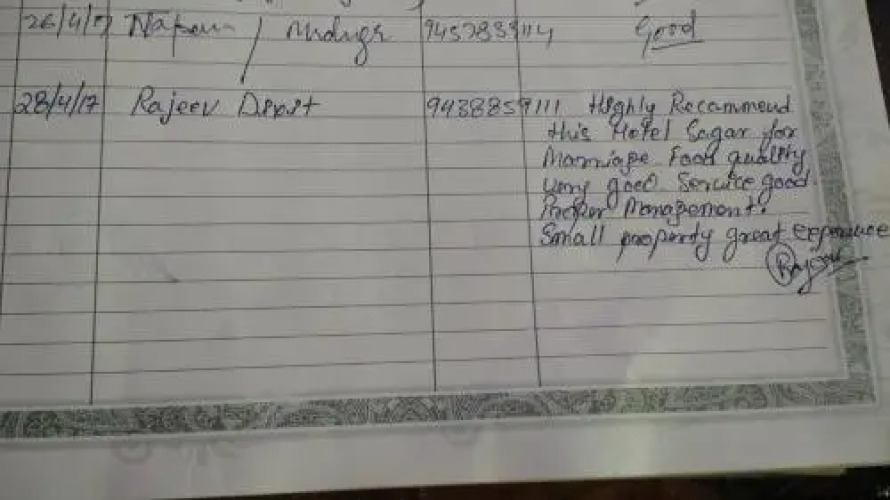 26/4/17 / 9457839114 Good
28/4/17 Rajeev Dixit 9438859111 Highly Recammend
this Hotel Sagar for
Marriage Food quality
very good Service good
Proper Management.
Small property great experience
Rajeev